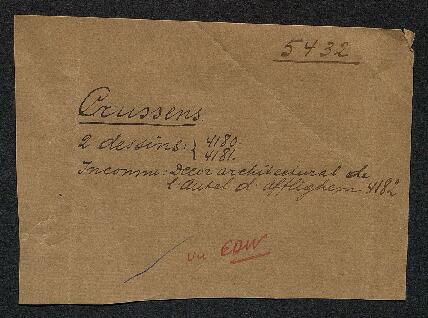 5432
Crussens
2 dessins: } 4180.
4181.
Inconnu: Décor architectural de
l'autel d'Afflighem 4182
vu EDW